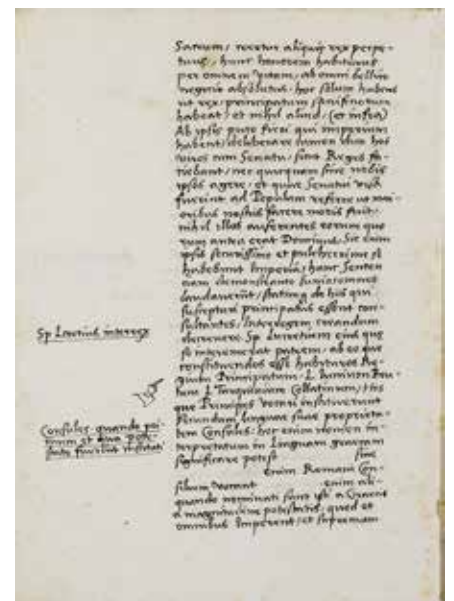 Sacrum, vocetur aliquis rex perpe-
tuus, hunc honorem habiturus
per omnem vitam, ab omni bellico
negocio absolutus, hoc solum habens
ut rex, principatum sacrificiorum
habeat, et nihil aliud, (et infra)
Ab ipsis puto fieri qui imperium
habent, deliberare tamen cum hos
viros cum Senatu, sicut Reges fa-
ciebant, nec quicquam sine nobis
ipsos agere, et quae Senatui visa
fuerint ad Populum referre ut mai-
oribus nostris facere moris fuit,
nihil illos auferentes eorum quo
rum antea erat Dominus. Sic enim
ipsis securissime et pulcherrime se
habebunt Imperia, hanc Senten
tiam
laudaverunt, statim de his qui
suscepturi principatus essent con-
sultantes, Interregem creandum
decrevere Sp. Lucretium eius quae
se interemerat patrem, ab eo que
constituendos esse habituros Re-
gum Principatum. L. Iunium Bru-
tum L. Tarquinium Collatinum, Hos
que Principes vocari instituerunt
secundum linguae suae proprieta-
tem Consules: hoc enim nomen in-
terpretatum in Linguam graecam
significare potest sive
enim Romani Con-
silium vocant enim ali-
quando nominati sunt isti a Graecis
a magnitudine potestatis, quod et
omnibus Imperent, et supremam
Sp Lucretius interrex
Consules quando pri
mum et qua potes
tate fuerunt instituti